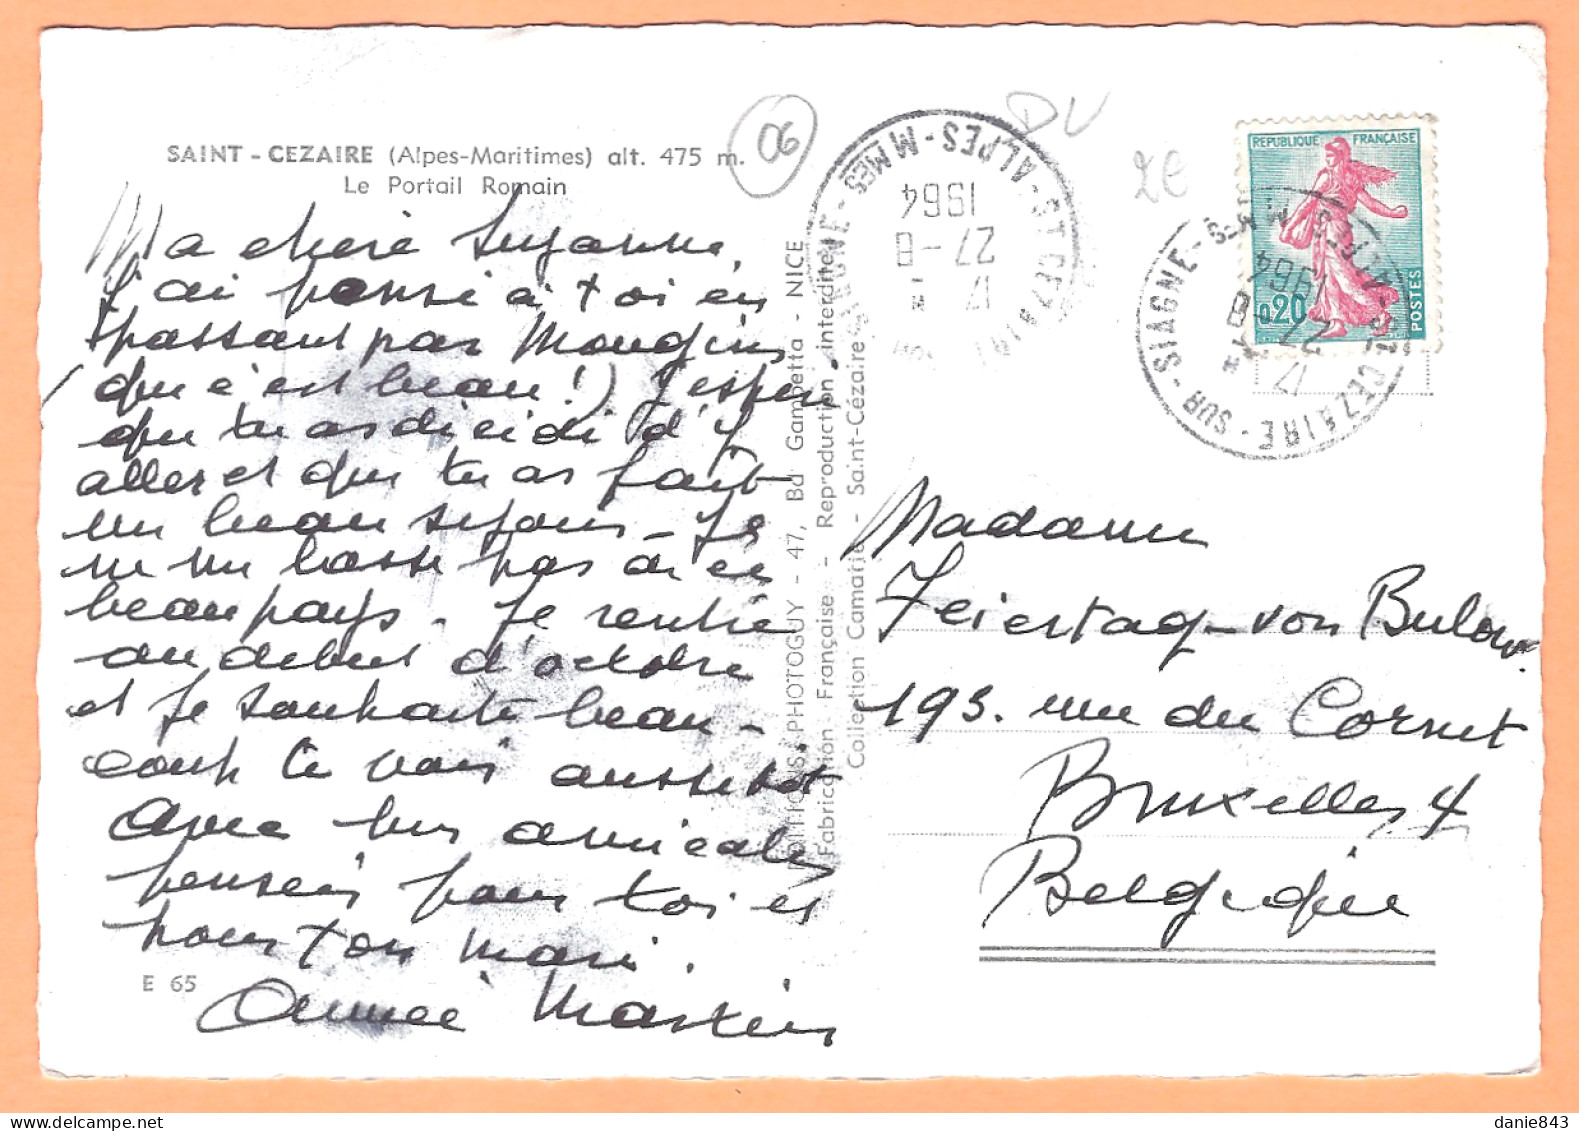 SAINT - CEZAIRE (Alpes-Maritimes) alt. 475 m.
Le Portail Romain
06
2€
Ma chère Suzanne,
J'ai pensé à toi en
passant par Mougins
(que c'est beau!) J'espère
que tu as décidé d'y
aller et que tu as fait
un beau séjour - Je
ne me lasse pas de ce
beau pays. Je rentre
au début d'octobre
et je souhaite beau-
coup te voir aussitôt
Avec mes amicales
pensées pour toi et
pour ton mari.
E 65
EDITIONS PHOTOGUY - 47, Bd Gambetta - NICE
Fabrication Française - Reproduction interdite
Collection Camarje - Saint-Cézaire
ST CEZAIRE-SUR-SIAGNE - ALPES-MMES
17 H
27-8
1964
REPUBLIQUE FRANÇAISE
0,20
POSTES
ST CEZAIRE-SUR-SIAGNE - ALPES-MMES
17 H
27-8
1964
Madame
Feiertag-von Bulow
193. rue du Cornet
Bruxelles 4
Belgique
danie843